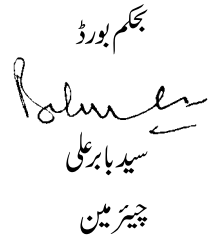 بحکم بورڈ
سید بابر علی
چیئرمین